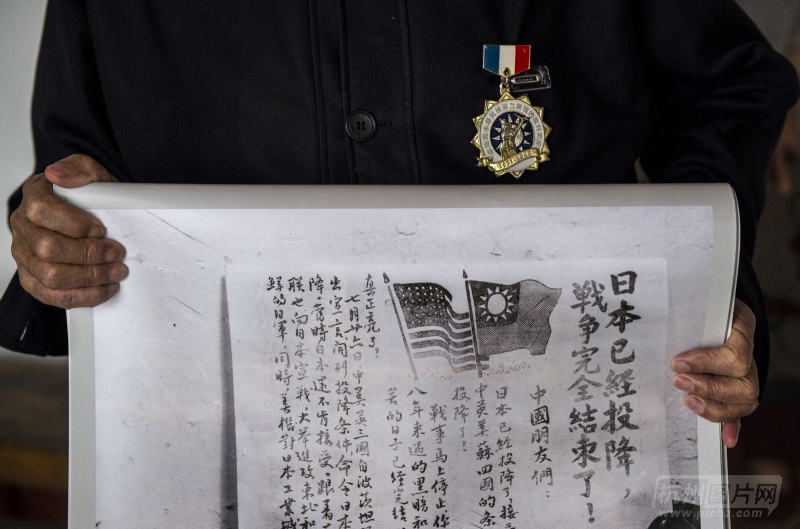 日本已經投降，
戦爭完全结束了！
中國朋友們：
日本已經投降了接
中英美蘇四國的条
投降了！
戰事馬上停止你
八年來過的黑暗和
苦的日子已經完結
真正亮了！
七月廿六日中美英三國自波茨坦
出宣言開列投降条件命令日本
降。當時日本還不肯接受跟着
联也向日本宣戰大举進攻東北和
鮮的日軍同時美機對日本工業城
杭州图片网
www.pichz.com